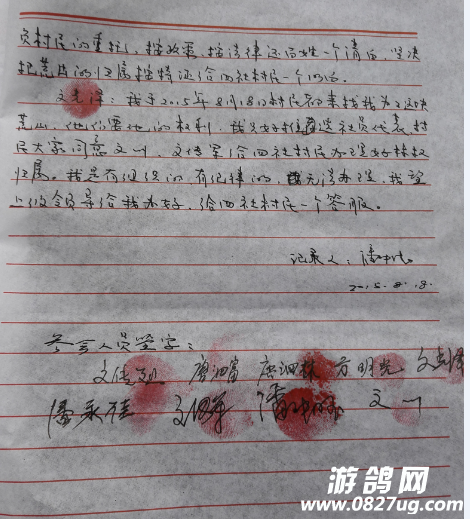 员村民的重托，按政策，按法律还百姓一个清白，坚决
把荒山的归属按特证给四社村民一个明白。
文光泽：我于2015年8月18日村民都来找我为了这块
荒山，他们要他们的权利，我只好推选社员代表，村
民大家同意文一，文传军给四社村民办理好林权
归属。我是有组织的，有纪律的，我无法办理，我望
上级领导给我办好，给四社村民一个答服。
记录人：
2015.8.18.
参会人员签字：
文传 唐泗富 唐泗林 方明光
潘永桂 文 文一
游鸽网
www.0827ug.com